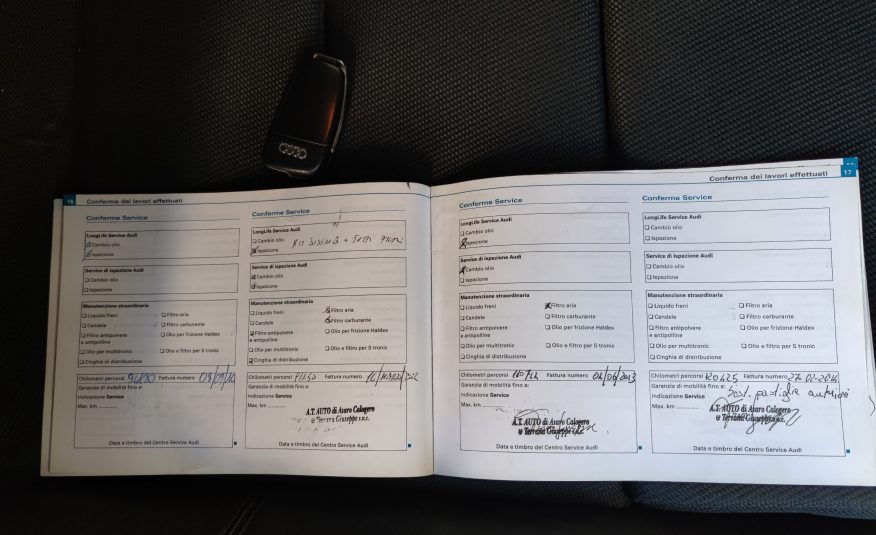 16 Conferma dei lavori effettuati
Conferme Service
LongLife Service Audi
Cambio olio
Ispezione
Service di ispezione Audi
Cambio olio
Ispezione
Manutenzione straordinaria
Liquido freni Filtro aria
Candele Filtro carburante
Filtro antipolvere Olio per frizione Haldex
e antipolline
Olio per multitronic Olio e filtro per S tronic
Cinghia di distribuzione
Chilometri percorsi Fattura numero 08/09/10
Garanzia di mobilità fino a:
Indicazione Service
Max. km
Data e timbro del Centro Service Audi
Conferme Service
LongLife Service Audi
Cambio olio
Ispezione
Service di ispezione Audi
Cambio olio
Ispezione
Manutenzione straordinaria
Liquido freni Filtro aria
Candele Filtro carburante
Filtro antipolvere Olio per frizione Haldex
e antipolline
Olio per multitronic Olio e filtro per S tronic
Cinghia di distribuzione
Chilometri percorsi Fattura numero
Garanzia di mobilità fino a:
Indicazione Service
Max. km
A.T. AUTO di Asaro Calogero
Data e timbro del Centro Service Audi
Conferma dei lavori effettuati 17
Conferme Service
LongLife Service Audi
Cambio olio
Ispezione
Service di ispezione Audi
Cambio olio
Ispezione
Manutenzione straordinaria
Liquido freni Filtro aria
Candele Filtro carburante
Filtro antipolvere Olio per frizione Haldex
e antipolline
Olio per multitronic Olio e filtro per S tronic
Cinghia di distribuzione
Chilometri percorsi Fattura numero
Garanzia di mobilità fino a:
Indicazione Service
Max. km
A.T. AUTO di Asaro Calogero
e Terrana Giuseppe s.n.c.
Data e timbro del Centro Service Audi
Conferme Service
LongLife Service Audi
Cambio olio
Ispezione
Service di ispezione Audi
Cambio olio
Ispezione
Manutenzione straordinaria
Liquido freni Filtro aria
Candele Filtro carburante
Filtro antipolvere Olio per frizione Haldex
e antipolline
Olio per multitronic Olio e filtro per S tronic
Cinghia di distribuzione
Chilometri percorsi 120425 Fattura numero 27-02-2014
Garanzia di mobilità fino a:
Indicazione Service Sost. pastiglie
Max. km
A.T. AUTO di Asaro Calogero
e Terrana Giuseppe s.n.c.
Data e timbro del Centro Service Audi